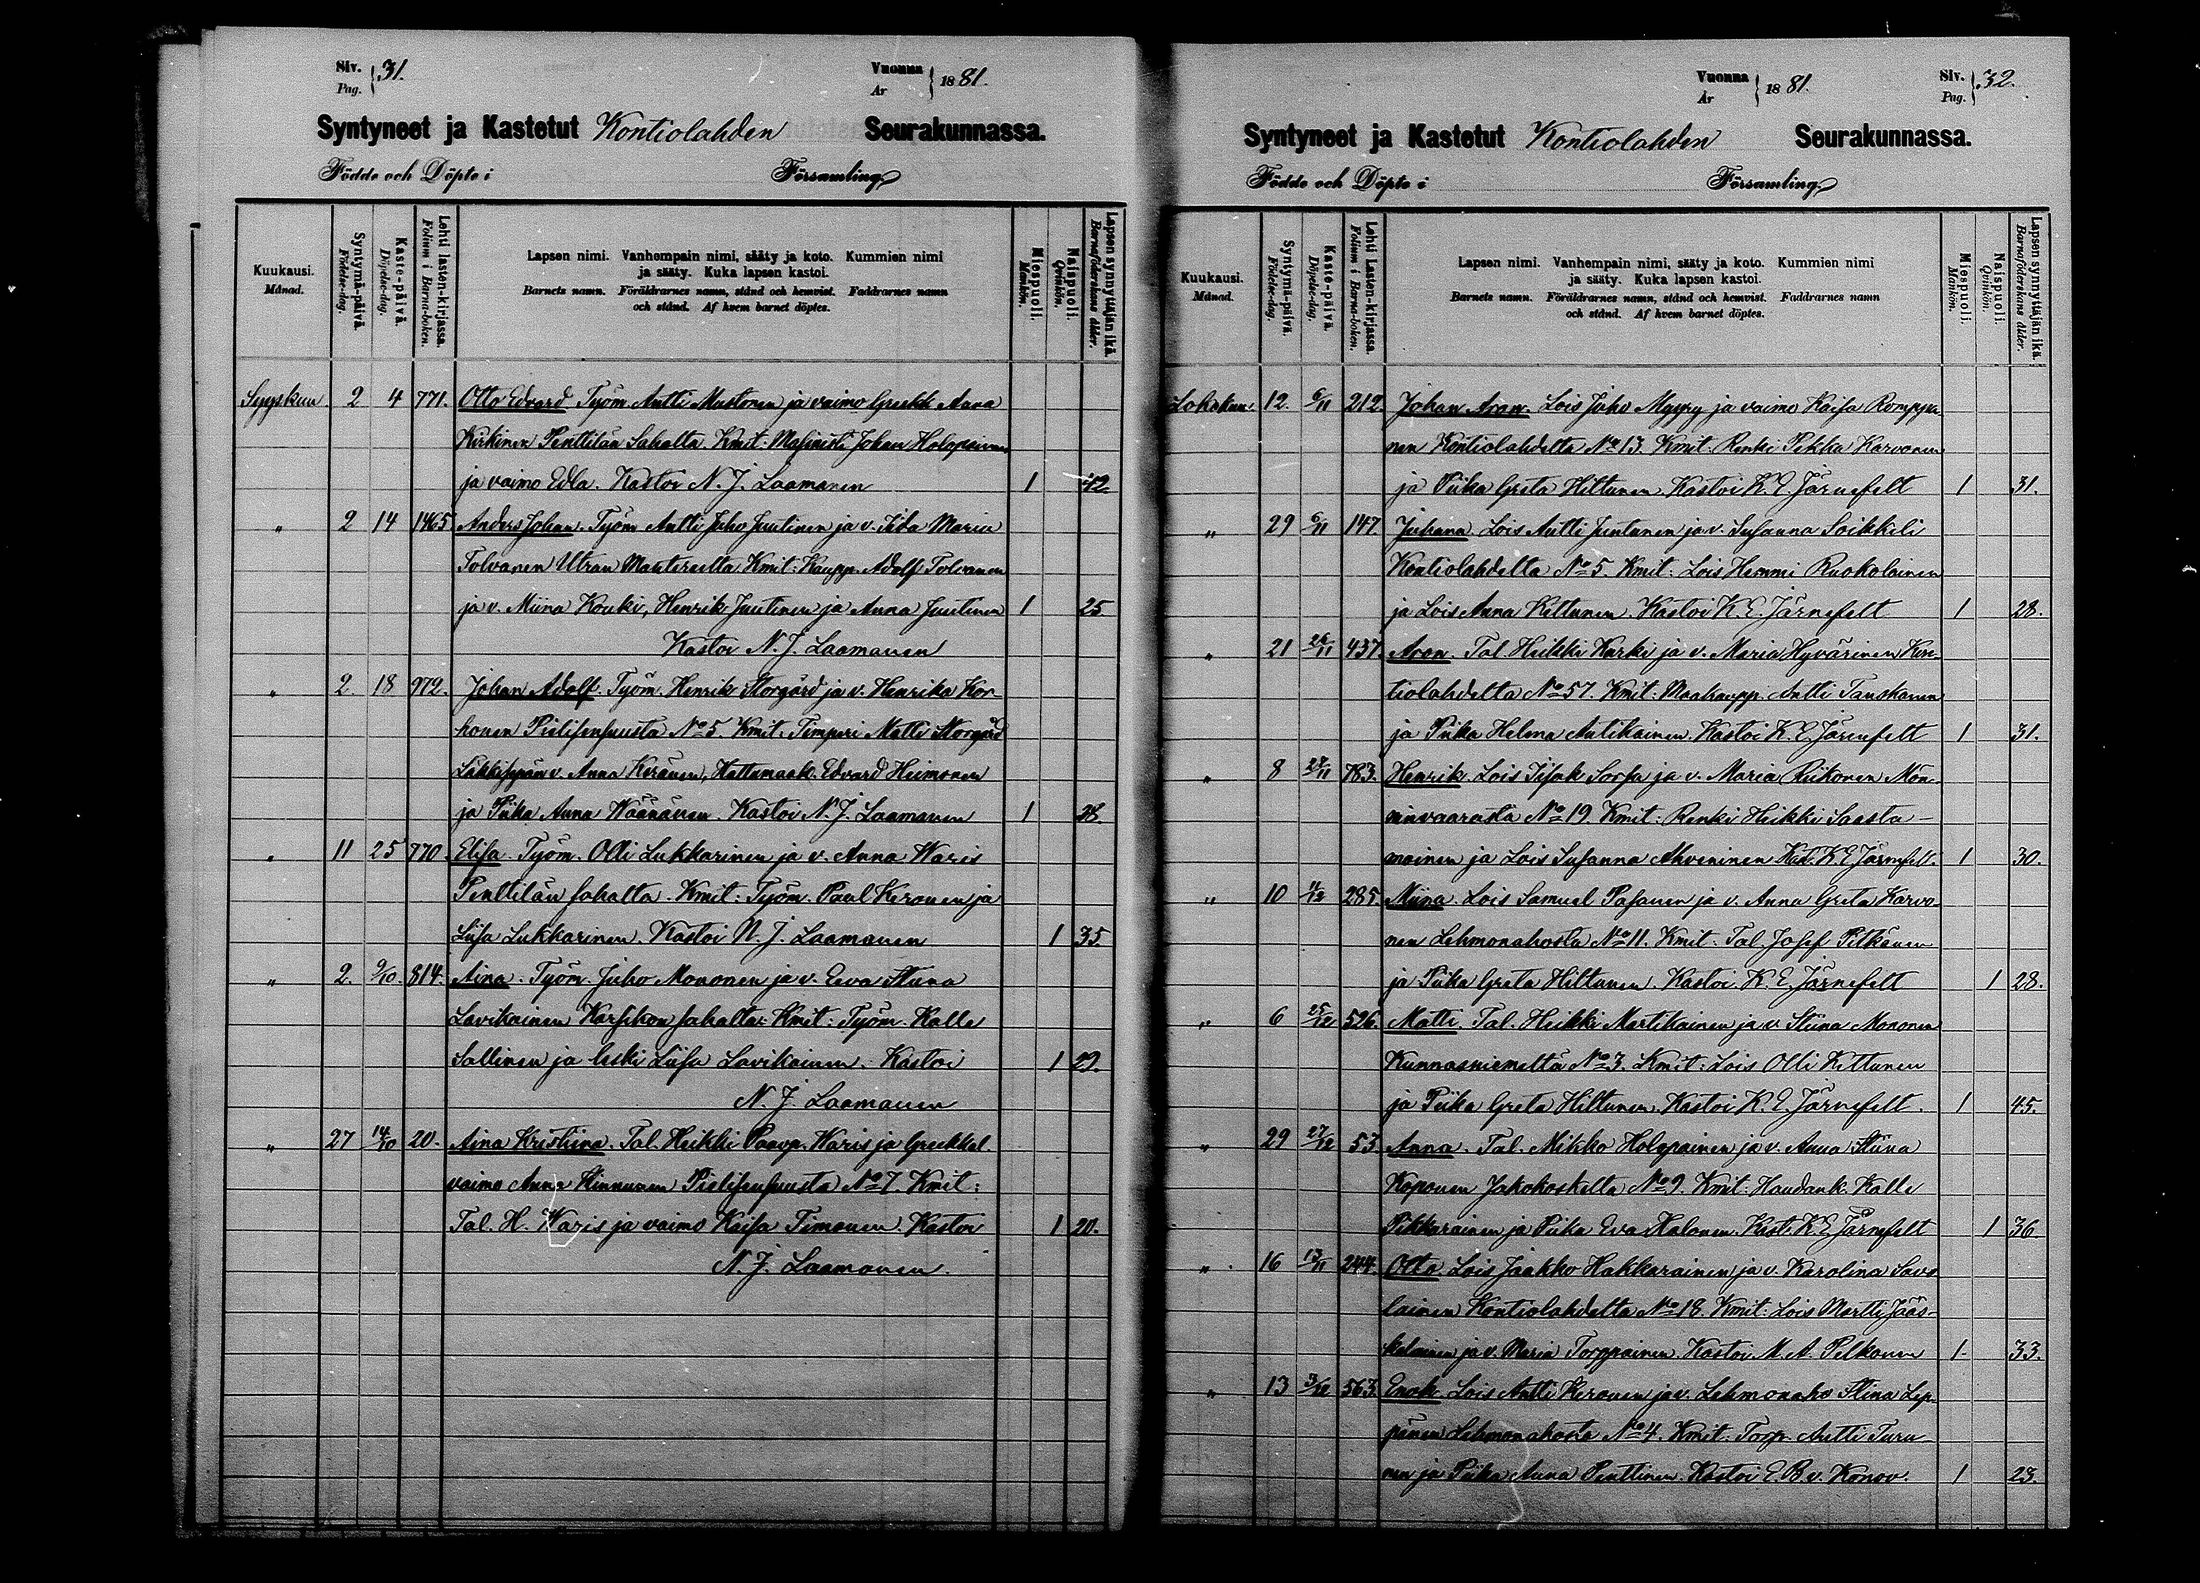 Siv. Pag. 31. Vuonna År 1881.
Syntyneet ja Kastetut Kontiolahden Seurakunnassa.
Födde och Döpte i Församling
Kuukausi. Månad.
Syntymä-päivä. Födelse-dag.
Kaste-päivä. Döpelse-dag.
Lehti lasten-kirjassa. Folium i Barna-boken.
Lapsen nimi. Vanhempain nimi, sääty ja koto. Kummien nimi
ja sääty. Kuka lapsen kastoi.
Barnets namn. Föräldrarnes namn, stånd och hemvist. Faddrarnes namn
och stånd. Af hvem barnet döptes.
Miespuoli. Mankön.
Naispuoli. Qvinkön.
Lapsen synnyttäjän ikä. Barnaföderskans ålder.
Syyskuu 2 4 771. Otto Edvard Työm Antti Mustonen ja vaimo Grekk Anna
Kirkinen Penttilän Sahalta. Kmit: Masinisti Johan Holopainen
ja vaimo Edla. Kastoi N. J. Laamanen 1 42.
" 2 14 1465. Anders Johan. Työm Antti Juho Juutinen ja v. Iida Maria
Tolvanen Utran Manterelta Kmit: Kaupp. Adolf Tolvanen
ja v. Miina Kouki, Henrik Juutinen ja Anna Juutinen 1 25
Kastoi N. J. Laamanen
" 2. 18 972. Johan Adolf. Työm. Henrik Storgård ja v. Henrika Kor-
honen Pielisensuusta No 5. Kmit: Timpuri Matti Storgård
Läkkisepän v. Anna Keränen, Hattumaak. Edvard Heimonen
ja Piika Anna Wäänänen. Kastoi N. J. Laamanen 1 28.
" 11 25 770. Elisa. Työm. Olli Lukkarinen ja v. Anna Waris
Penttilän sahalta. Kmit: Työm. Paul Keronen ja
Liisa Lukkarinen. Kastoi N. J. Laamanen 1 35.
" 2. 9/10. 814. Aina. Työm. Juho Mononen ja v. Eeva Stiina
Lavikainen Karsikon sahalta: Kmit: Työm. Kalle
Sallinen ja leski Liisa Lavikainen. Kastoi 1 29.
N. J. Laamanen
" 27 14/10 20. Aina Kristiina. Tal. Heikki Paavp. Waris ja Grekkal.
vaimo Anna Hinnunen Pielisensuusta No 7. Kmit:
Tal. H. Waris ja vaimo Kaisa Timonen. Kastoi 1 20.
N. J. Laamanen.
Vuonna År 1881. Siv. Pag. 32.
Syntyneet ja Kastetut Kontiolahden Seurakunnassa.
Födde och Döpte i Församling
Kuukausi. Månad.
Syntymä-päivä. Födelse-dag.
Kaste-päivä. Döpelse-dag.
Lehti Lasten-kirjassa. Folium i Barna-boken.
Lapsen nimi. Vanhempain nimi, sääty ja koto. Kummien nimi
ja sääty. Kuka lapsen kastoi.
Barnets namn. Föräldrarnes namn, stånd och hemvist. Faddrarnes namn
och stånd. Af hvem barnet döptes.
Miespuoli. Mankön.
Naispuoli. Qvinkön.
Lapsen synnyttäjän ikä. Barnaföderskans ålder.
Lokakuu. 12. 6/11 212. Johan Aron. Lois Juho Myyry ja vaimo Kaisa Romppa-
nen Kontiolahdelta No 13. Kmit: Renki Pekka Karvonen
ja Piika Greta Hiltunen. Kastoi K. E. Järnefelt 1 31.
" 29 6/11 147. Juhana. Lois Antti Juntunen ja v. Susanna Soikkeli
Kontiolahdelta No 5. Kmit: Lois Hemmi Ruokolainen
ja Lois Anna Kettunen. Kastoi K. E. Järnefelt 1 28.
" 21 26/11 437. Aron. Tal. Heikki Kurki ja v. Maria Hyvärinen Kon-
tiolahdelta No 57. Kmit: Maakaupp. Antti Tanskanen
ja Piika Helma Antikainen. Kastoi K. E. Järnefelt 1 31.
" 8 27/11 783. Henrik. Lois Iisak Sorsa ja v. Maria Riikonen Mön-
ninvaarasta No 19. Kmit: Renki Heikki Saasta-
moinen ja Lois Susanna Ahveninen Kast. K. E. Järnefelt. 1 30.
" 10 4/12 285. Miina. Lois Samuel Pasanen ja v. Anna Greta Karvo-
nen Lehmonahosta No 11. Kmit: Tal. Josef Pitkänen
ja Piika Greta Hiltunen. Kastoi K. E. Järnefelt 1 28.
" 6 25/12 526. Matti. Tal. Heikki Martikainen ja v. Stiina Mononen
Kunnasniemeltä No 3. Kmit: Lois Olli Kettunen
ja Piika Greta Hiltunen. Kastoi K. E. Järnefelt. 1 45.
" 29 27/12 53. Anna. Tal. Mikko Holopainen ja v. Anna Stiina
Koponen Jakokoskelta No 9. Kmit: Haudank. Kalle
Pikkarainen ja Piika Eva Halonen. Kast. K. E. Järnefelt 1 36
" 16 13/11 244. Otto Lois Jaakko Hakkarainen ja v. Karolina Savo-
lainen Kontiolahdelta No 18. Kmit: Lois Martti Jääs-
keläinen ja v. Maria Torppainen. Kastoi M. A. Pelkonen 1. 33.
" 13 3/12 563. Enok. Lois Antti Keronen ja v. Lehmonaho Stina Lep-
pänen Lehmonahosta No 4. Kmit: Torp. Antti Turu-
nen ja Piika Anna Penttinen. Kastoi E. B. v. Konov. 1 23.